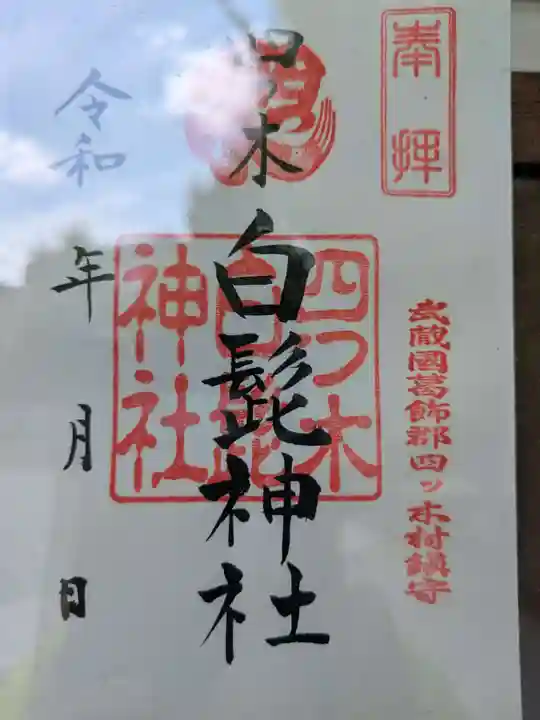 奉拝
武蔵國葛飾郡四ッ木村鎮守
四ツ木
白髭神社
四つ木
白髭
神社
令和
年 月 日